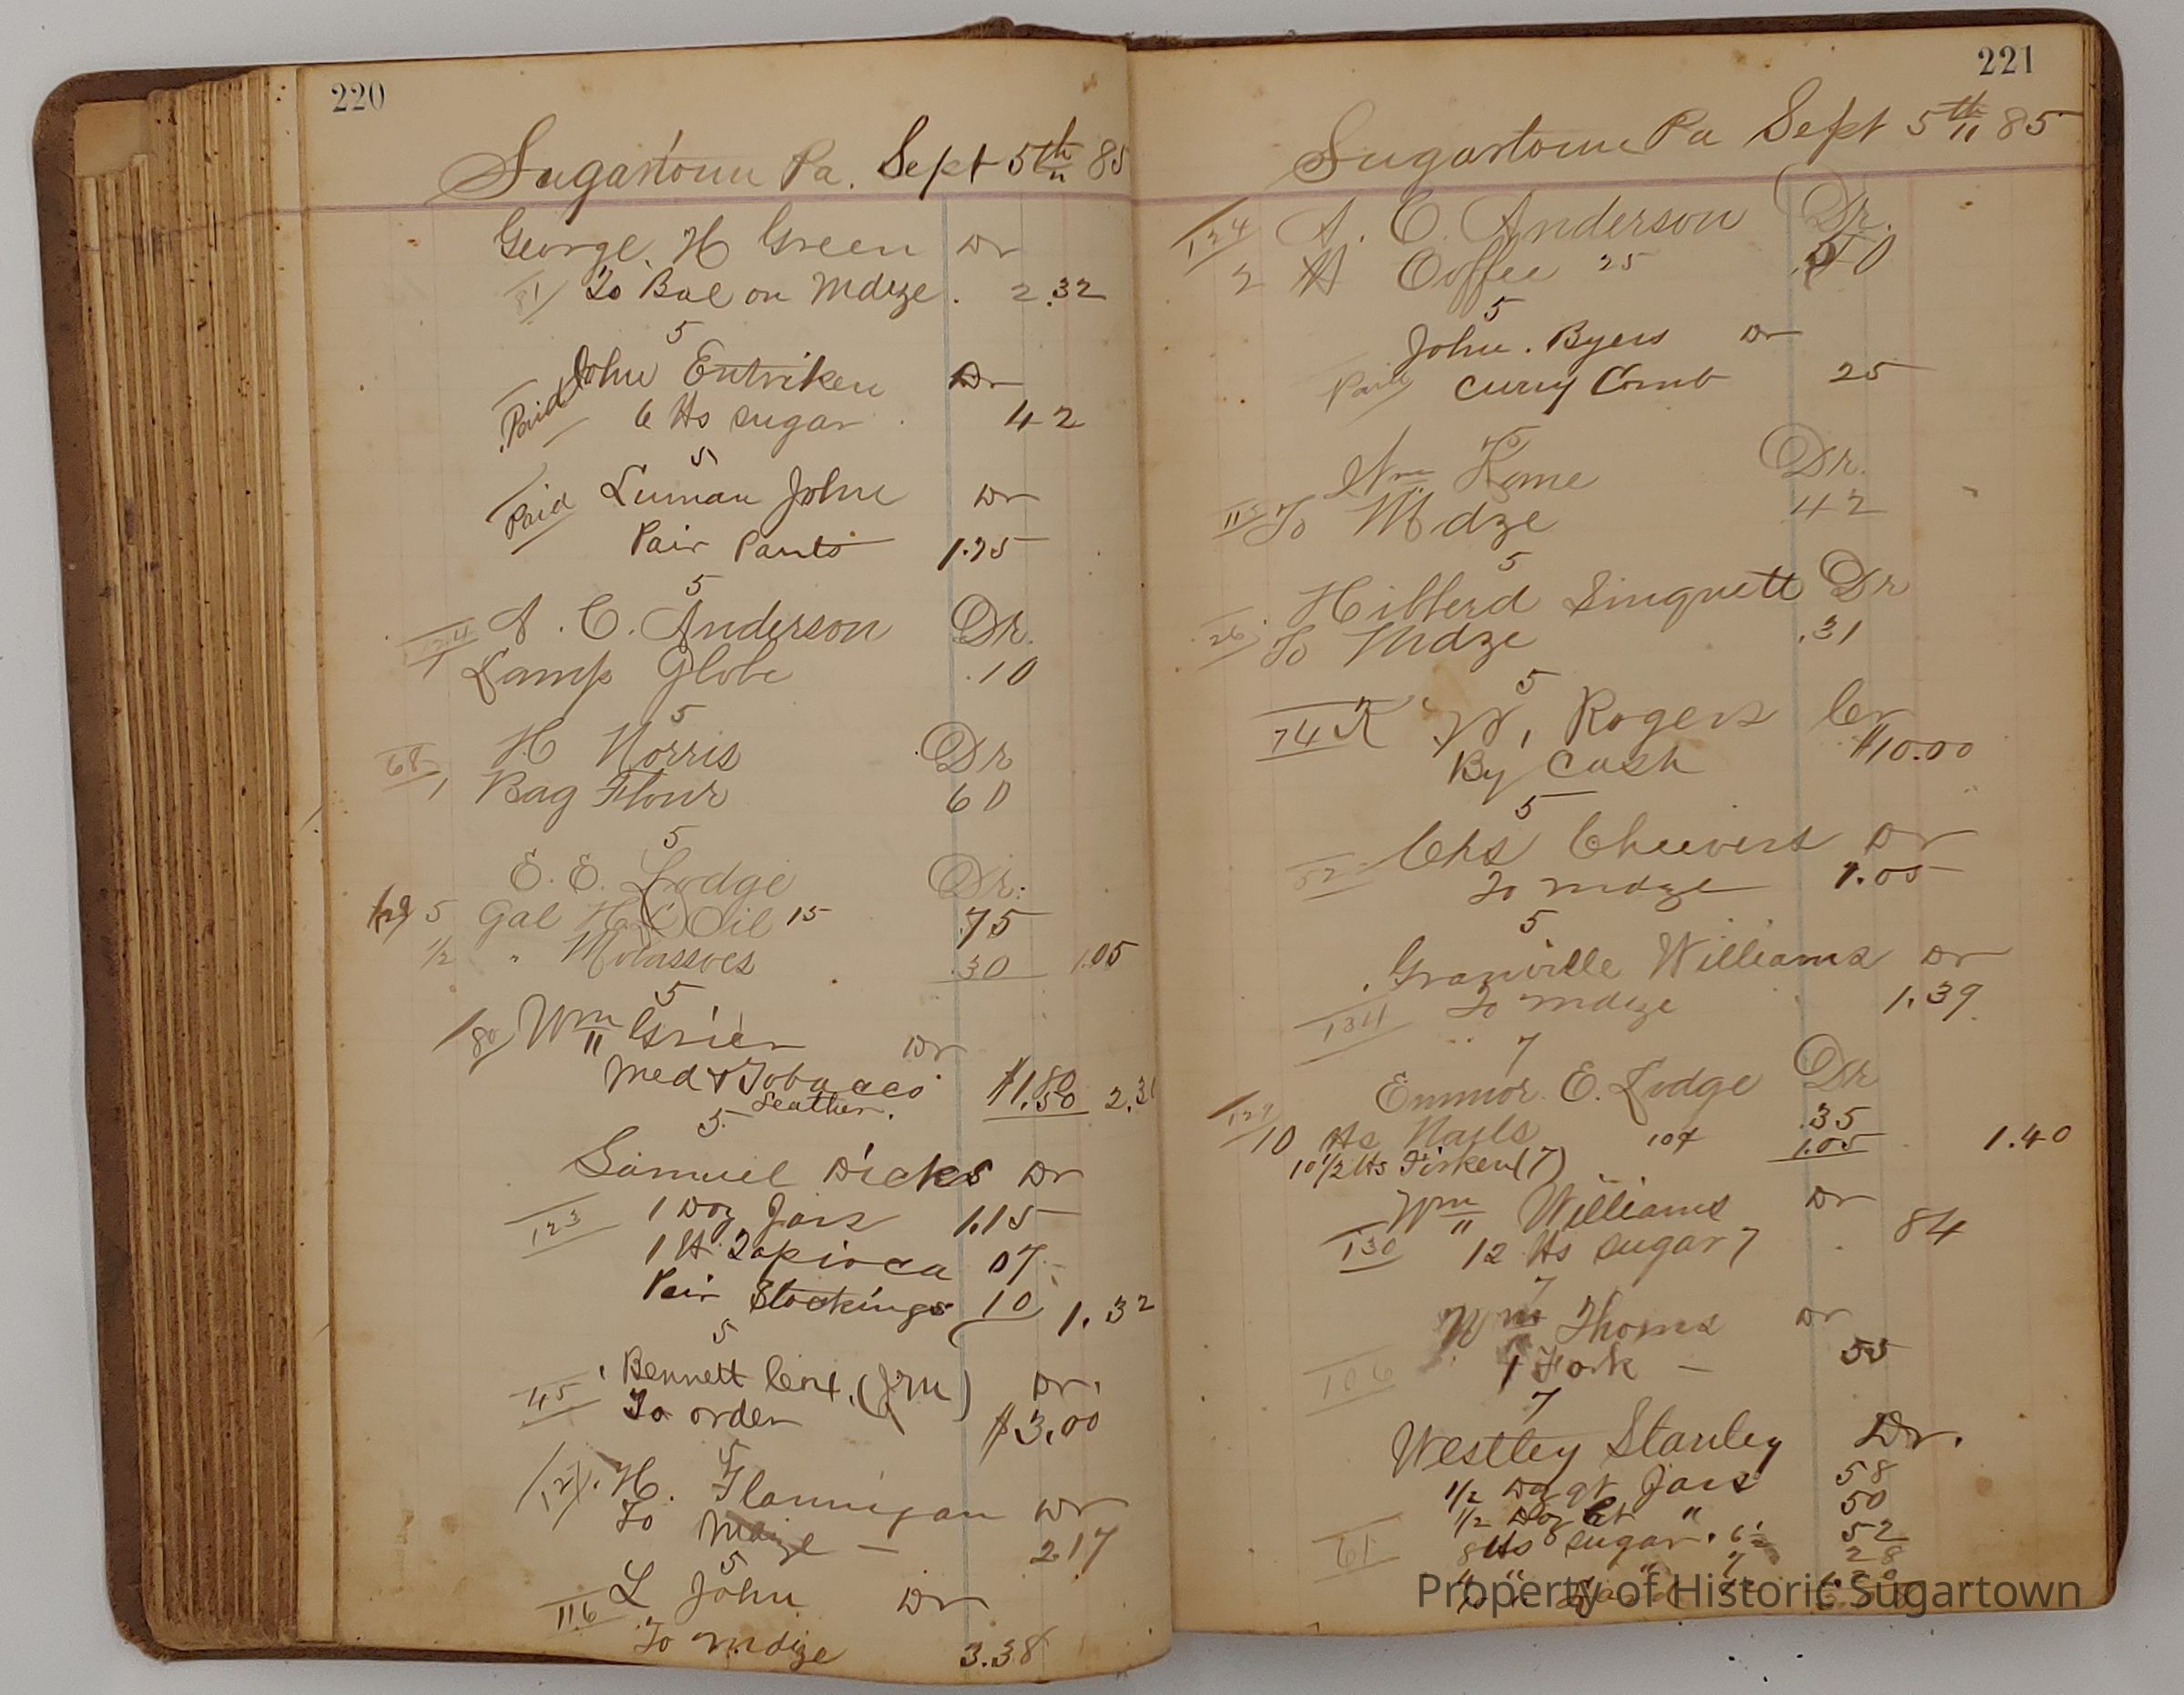 220
Sugartown Pa. Sept 5th 85
George. H Green Dr
81 To Bal on Mdze. 2.32
5
John Entriken Dr
Paid 6 lbs sugar 42
5
Paid Luman John Dr
Pair Pants 1.25
5
124 A. C. Anderson Dr.
1 Lamp Globe .10
5
68 H Norris Dr
1 Bag Flour 60
5
E. E. Lodge Dr.
129 5 Gal H L Oil 15 .75
1/2 " Molassoes .30 1.05
5
80 Wm Grier Dr
Med & Tobacco $1.80
Leather. .50
5
Samuel Dicks Dr
123 1 Doz Jars 1.15
1 lb Tapioca 07
Pair Stockings 10 1.32
5
45 Bennett Cox. (Jm) Dr.
To order $3.00
5
121 H. Flannigan Dr
To Mdze 2.17
5
116 L John Dr
To mdze 3.38
221
Sugartown Pa Sept 5th 85
124 A. C. Anderson Dr.
2 lb Coffee 25 .50
5
John. Byers Dr
Paid Curry Comb 25
5
Wm Kame Dr.
To Mdze 42
5
Hibberd Sinquett Dr
26 To Mdze .31
5
74 K W, Rogers Cr
By Cash $10.00
5
Chs Cheevers Dr
52 To mdze 1.05
5
Granville Williams Dr
134 To mdze 1.39
7
Emmor. E. Lodge Dr
129 10 lbs Nails .35
10 1/2 lbs Firken (7) 10¢ 1.05 1.40
Wm Williams Dr
130 12 lbs sugar 7 84
7
Wm Thoms Dr
106 1 Fork 55
7
Westley Stanley Dr.
1/2 Doz qt Jars 58
1/2 Doz Pt " 50
61 8 lbs sugar. 6 1/2 52
4 " " 7 28
Property of Historic Sugartown